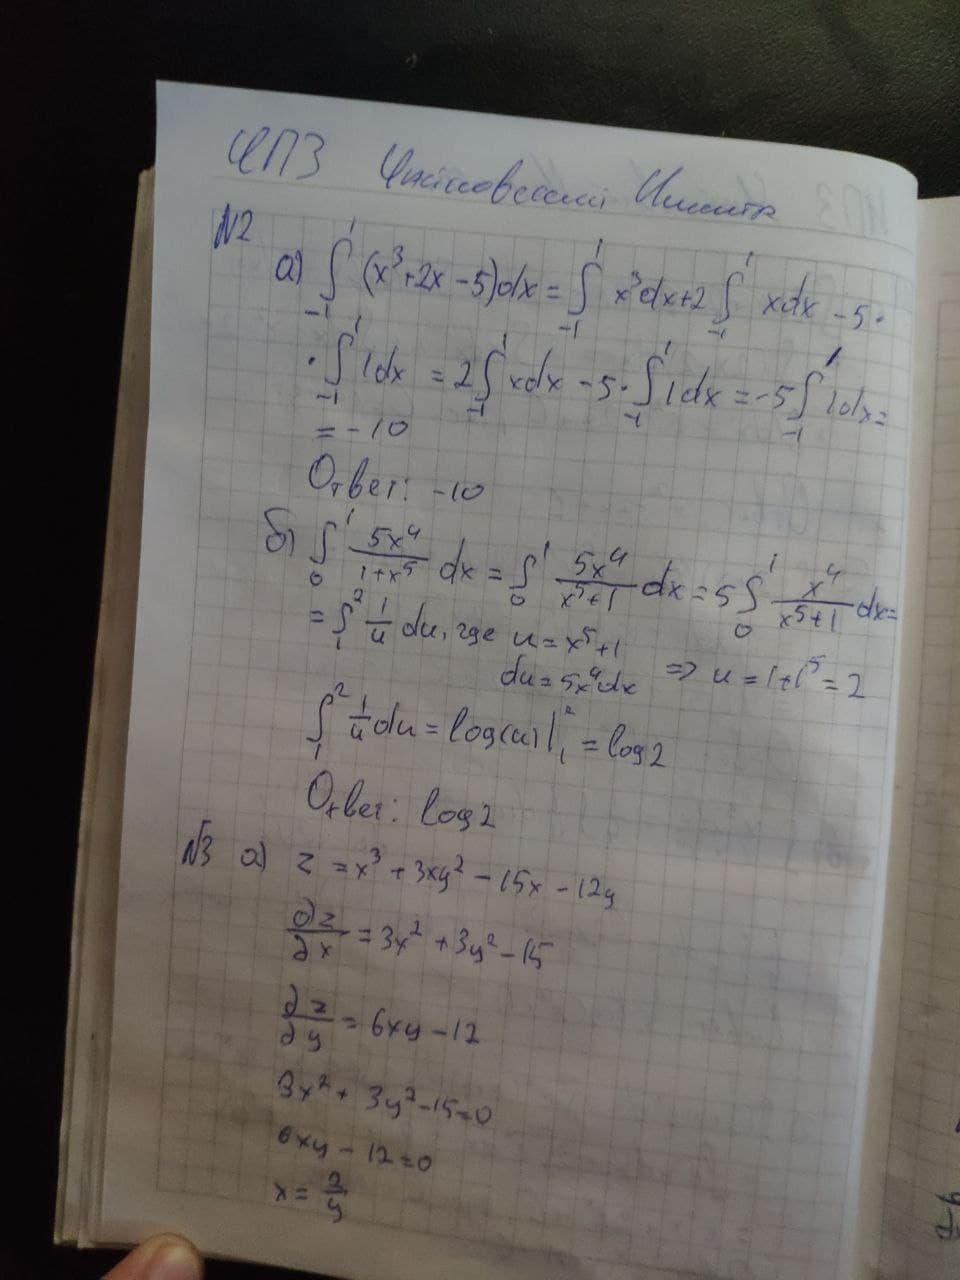 ЧПЗ
№2
а) ∫₋₁¹ (x³+2x-5)dx = ∫₋₁¹ x³dx+2 ∫₋₁¹ xdx - 5·
· ∫₋₁¹ 1dx = 2∫₋₁¹ xdx - 5·∫₋₁¹ 1dx = -5∫₋₁¹ 1dx =
= -10
Ответ: -10
б) ∫₀¹ 5x⁴/(1+x⁵) dx = ∫₀¹ 5x⁴/(x⁵+1) dx = 5∫₀¹ x⁴/(x⁵+1) dx =
= ∫₁² 1/u du, где u = x⁵+1
du = 5x⁴dx => u = 1+1⁵ = 2
∫₁² 1/u du = log(u)|₁² = log2
Ответ: log2
№3 а) z = x³ + 3xy² - 15x - 12y
∂z/∂x = 3x² + 3y² - 15
∂z/∂y = 6xy - 12
3x² + 3y² - 15 = 0
6xy - 12 = 0
x = 2/y